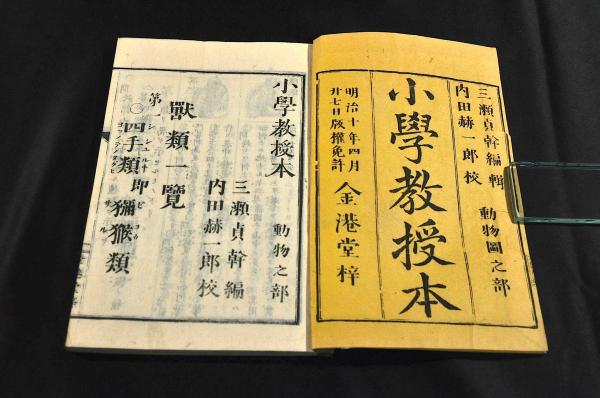 三瀬貞幹編輯 動物圖之部
内田赫一郎校
小學教授本
明治十年四月
廿七日版權免許
金港堂梓
小學教授本 動物之部
三瀬貞幹編
内田赫一郎校
獸類一覽
第一
○四手類即獼猴類